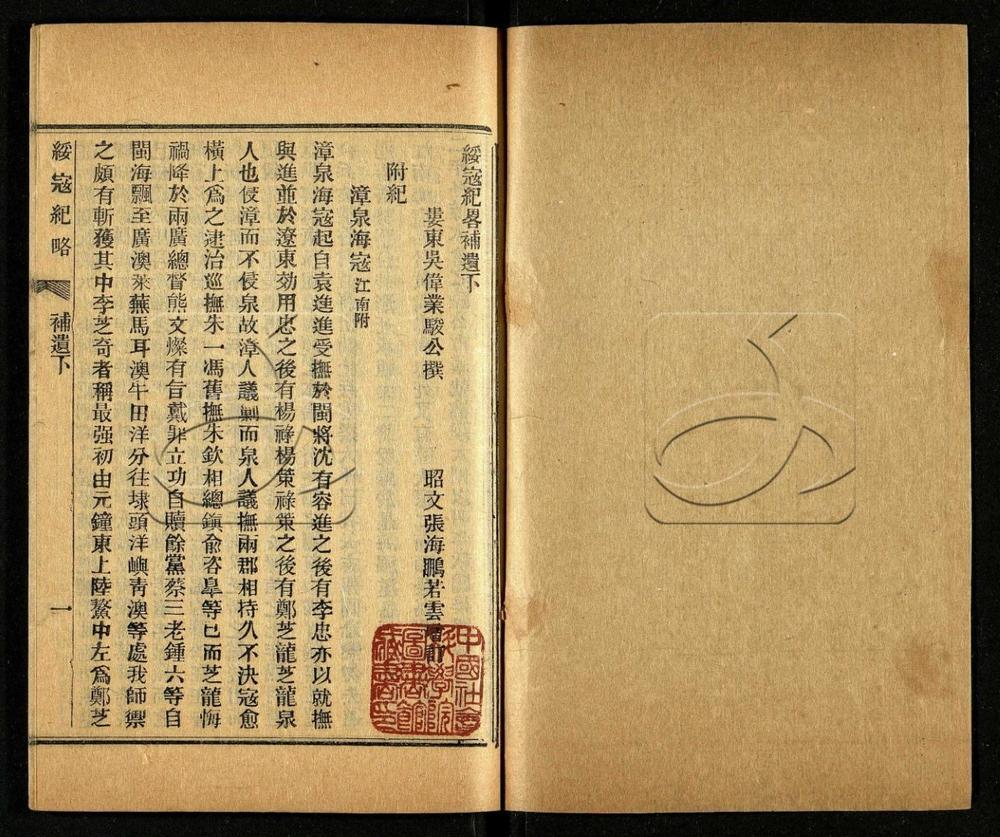 綏寇紀畧補遺下
婁東吳偉業駿公撰　昭文張海鵬若雲　訂
附紀
漳泉海寇江南附
漳泉海寇起自袁進進受撫於閩將沈有容進之後有李忠亦以就撫
與進並於遼東効用忠之後有楊祿楊策祿策之後有鄭芝龍芝龍泉
人也侵漳而不侵泉故漳人議剿而泉人議撫兩郡相持久不決寇愈
橫上爲之逮治巡撫朱一馮舊撫朱欽相總鎭俞咨臯等已而芝龍悔
禍降於兩廣總督熊文燦有旨戴罪立功自贖餘黨蔡三老鍾六等自
閩海飄至廣澳萊蕪馬耳澳牛田洋分往埭頭洋嶼靑澳等處我師禦
之頗有斬獲其中李芝奇者稱最强初由元鐘東上陸鰲中左爲鄭芝
綏寇紀略　補遺下　一
中國社會科學院圖書館藏書之